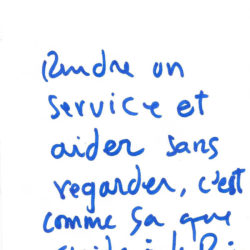 Rendre un
service et
aider sans
regarder, c'est
comme ça que